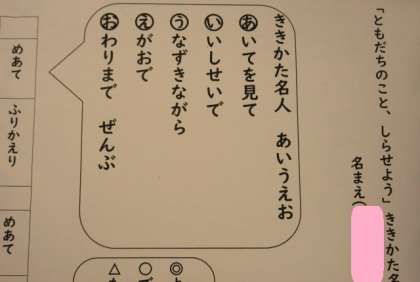 「ともだちのこと、しらせよう」ききかた名
名まえ(
ききかた名人　あいうえお
あいてを見て
いいしせいで
うなずきながら
えがおで
おわりまで　ぜんぶ
◎
○
△
めあて
ふりかえり
めあて